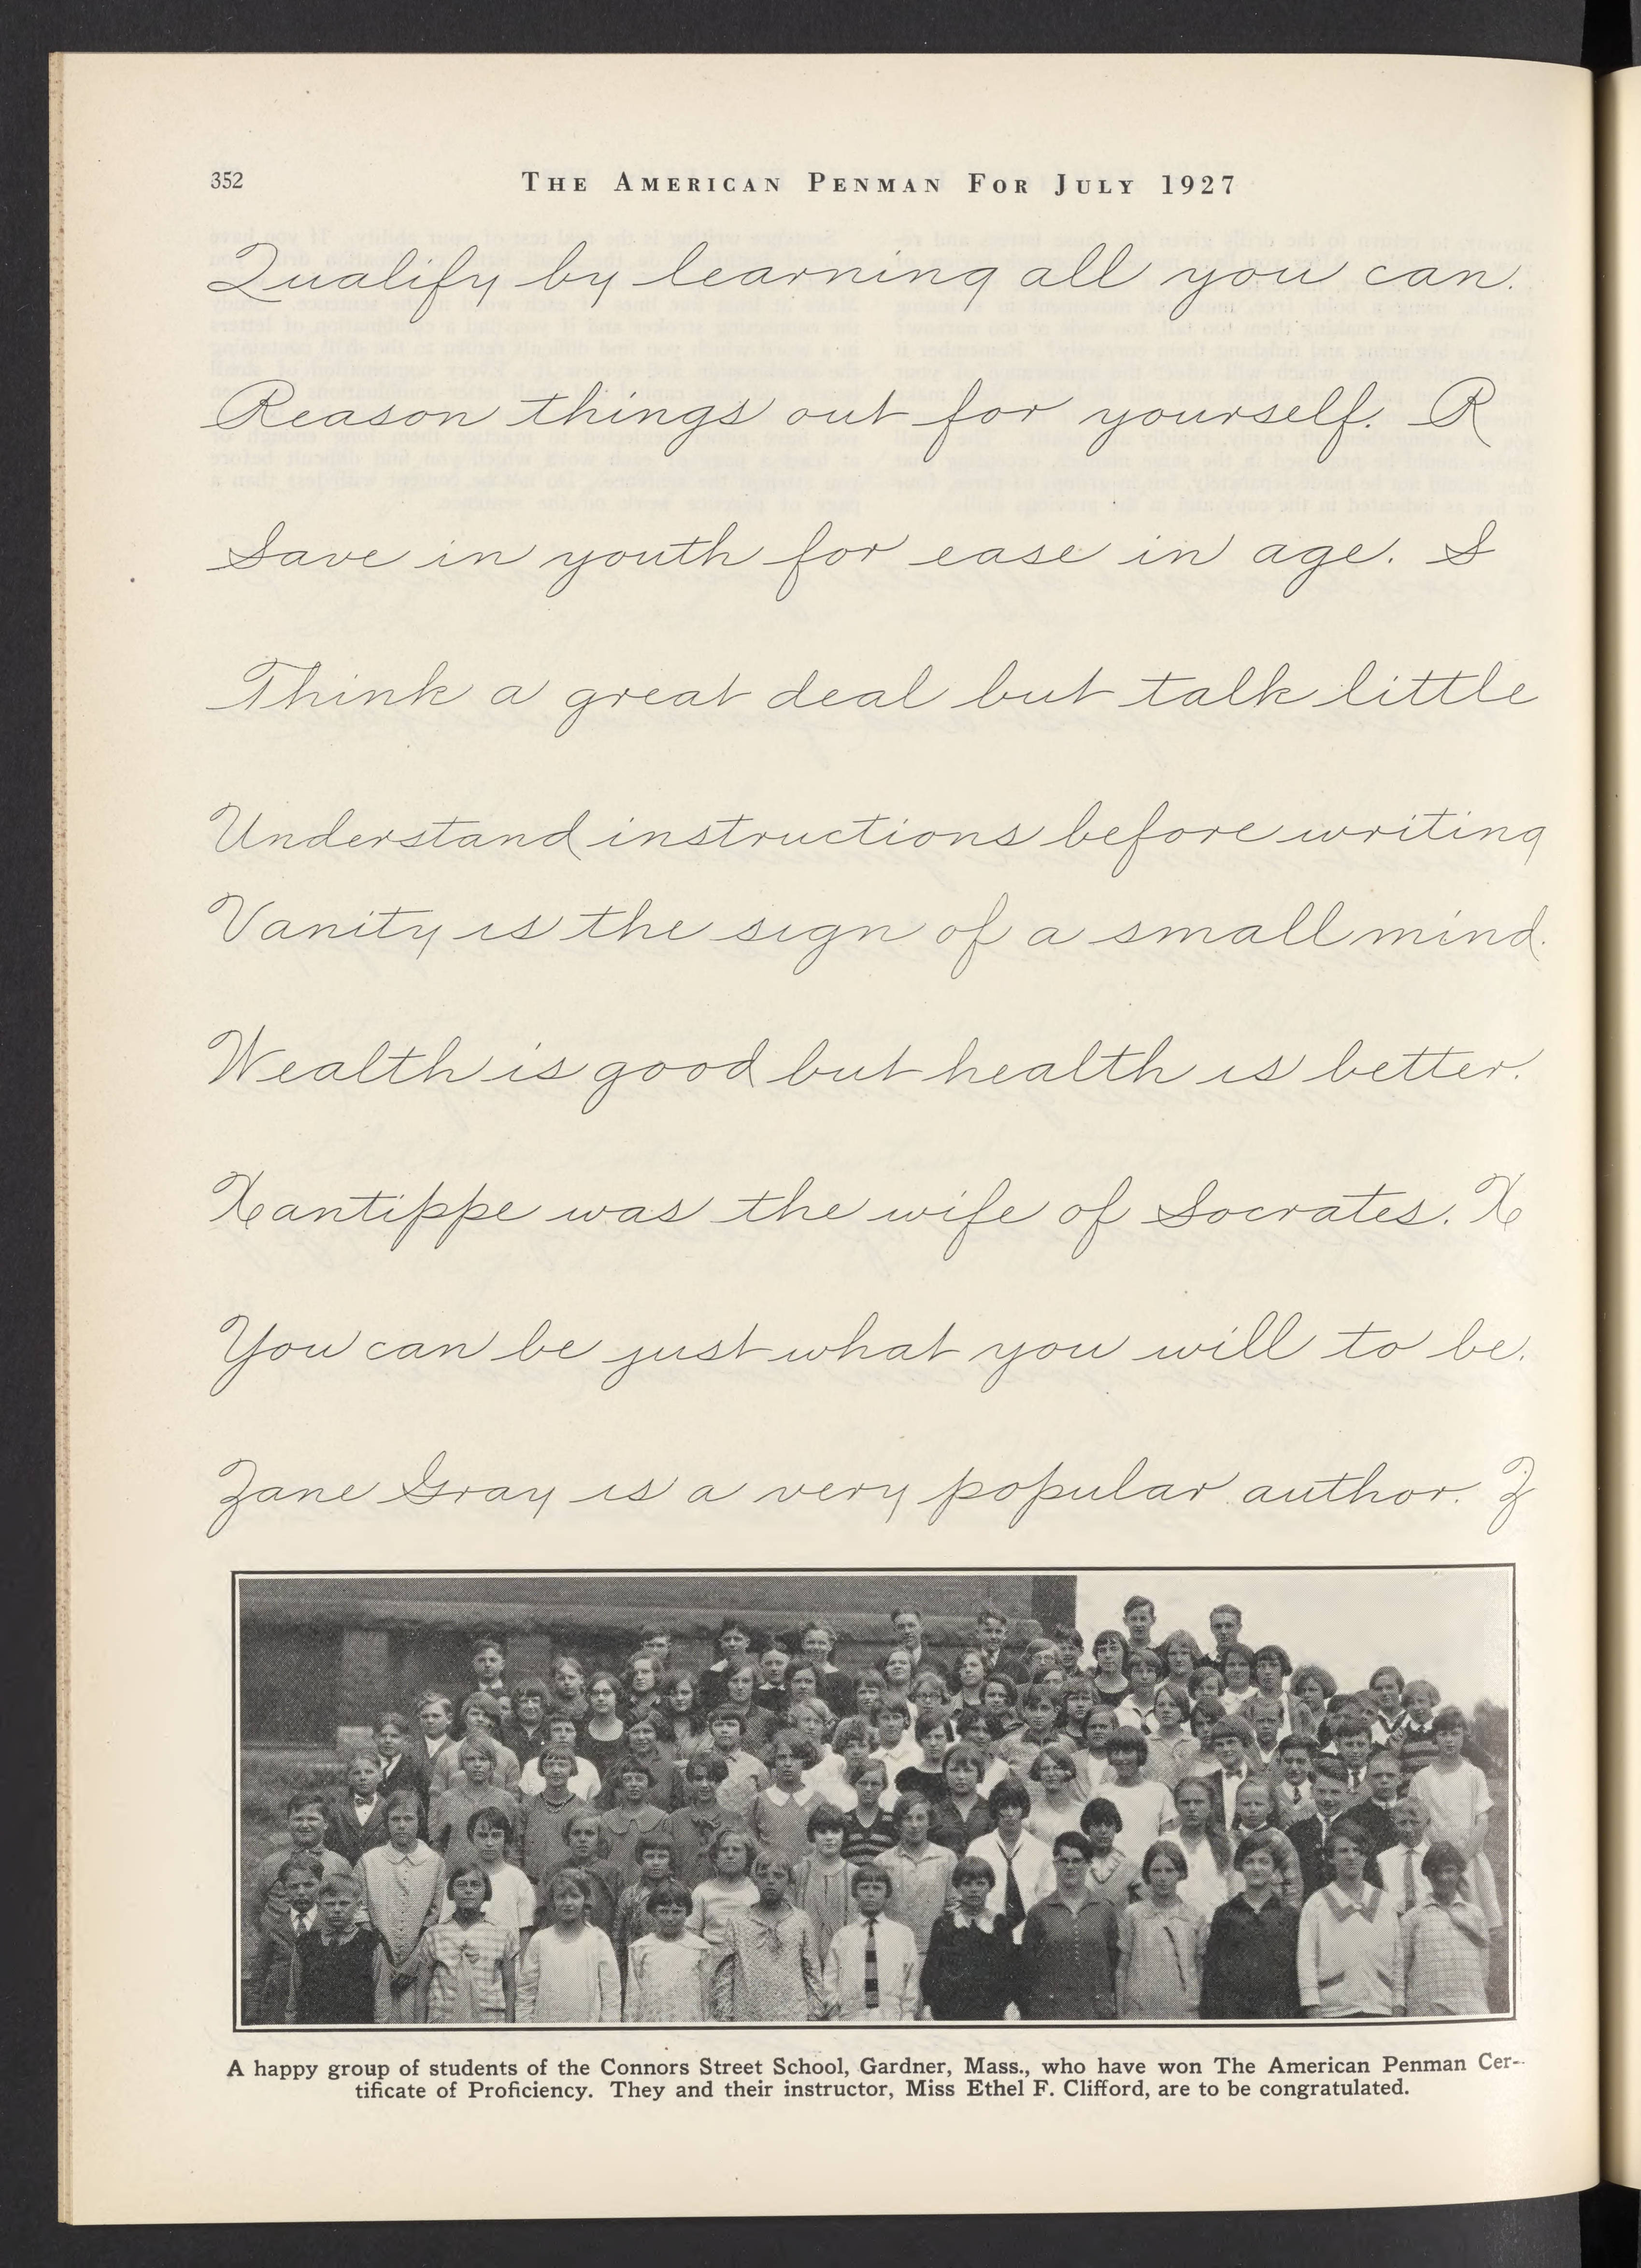 352
THE AMERICAN PENMAN FOR JULY 1927
Qualify by learning all you can.
Reason things out for yourself. R
Save in youth for ease in age. S
Think a great deal but talk little
Understand instructions before writing
Vanity is the sign of a small mind.
Wealth is good but health is better.
Xantippe was the wife of Socrates. X
You can be just what you will to be.
Zane Gray is a very popular author. Z
A happy group of students of the Connors Street School, Gardner, Mass., who have won The American Penman Cer-
tificate of Proficiency. They and their instructor, Miss Ethel F. Clifford, are to be congratulated.